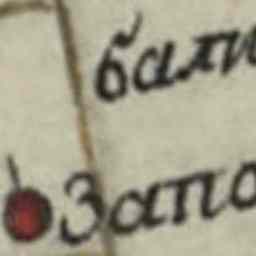 бали
Запо